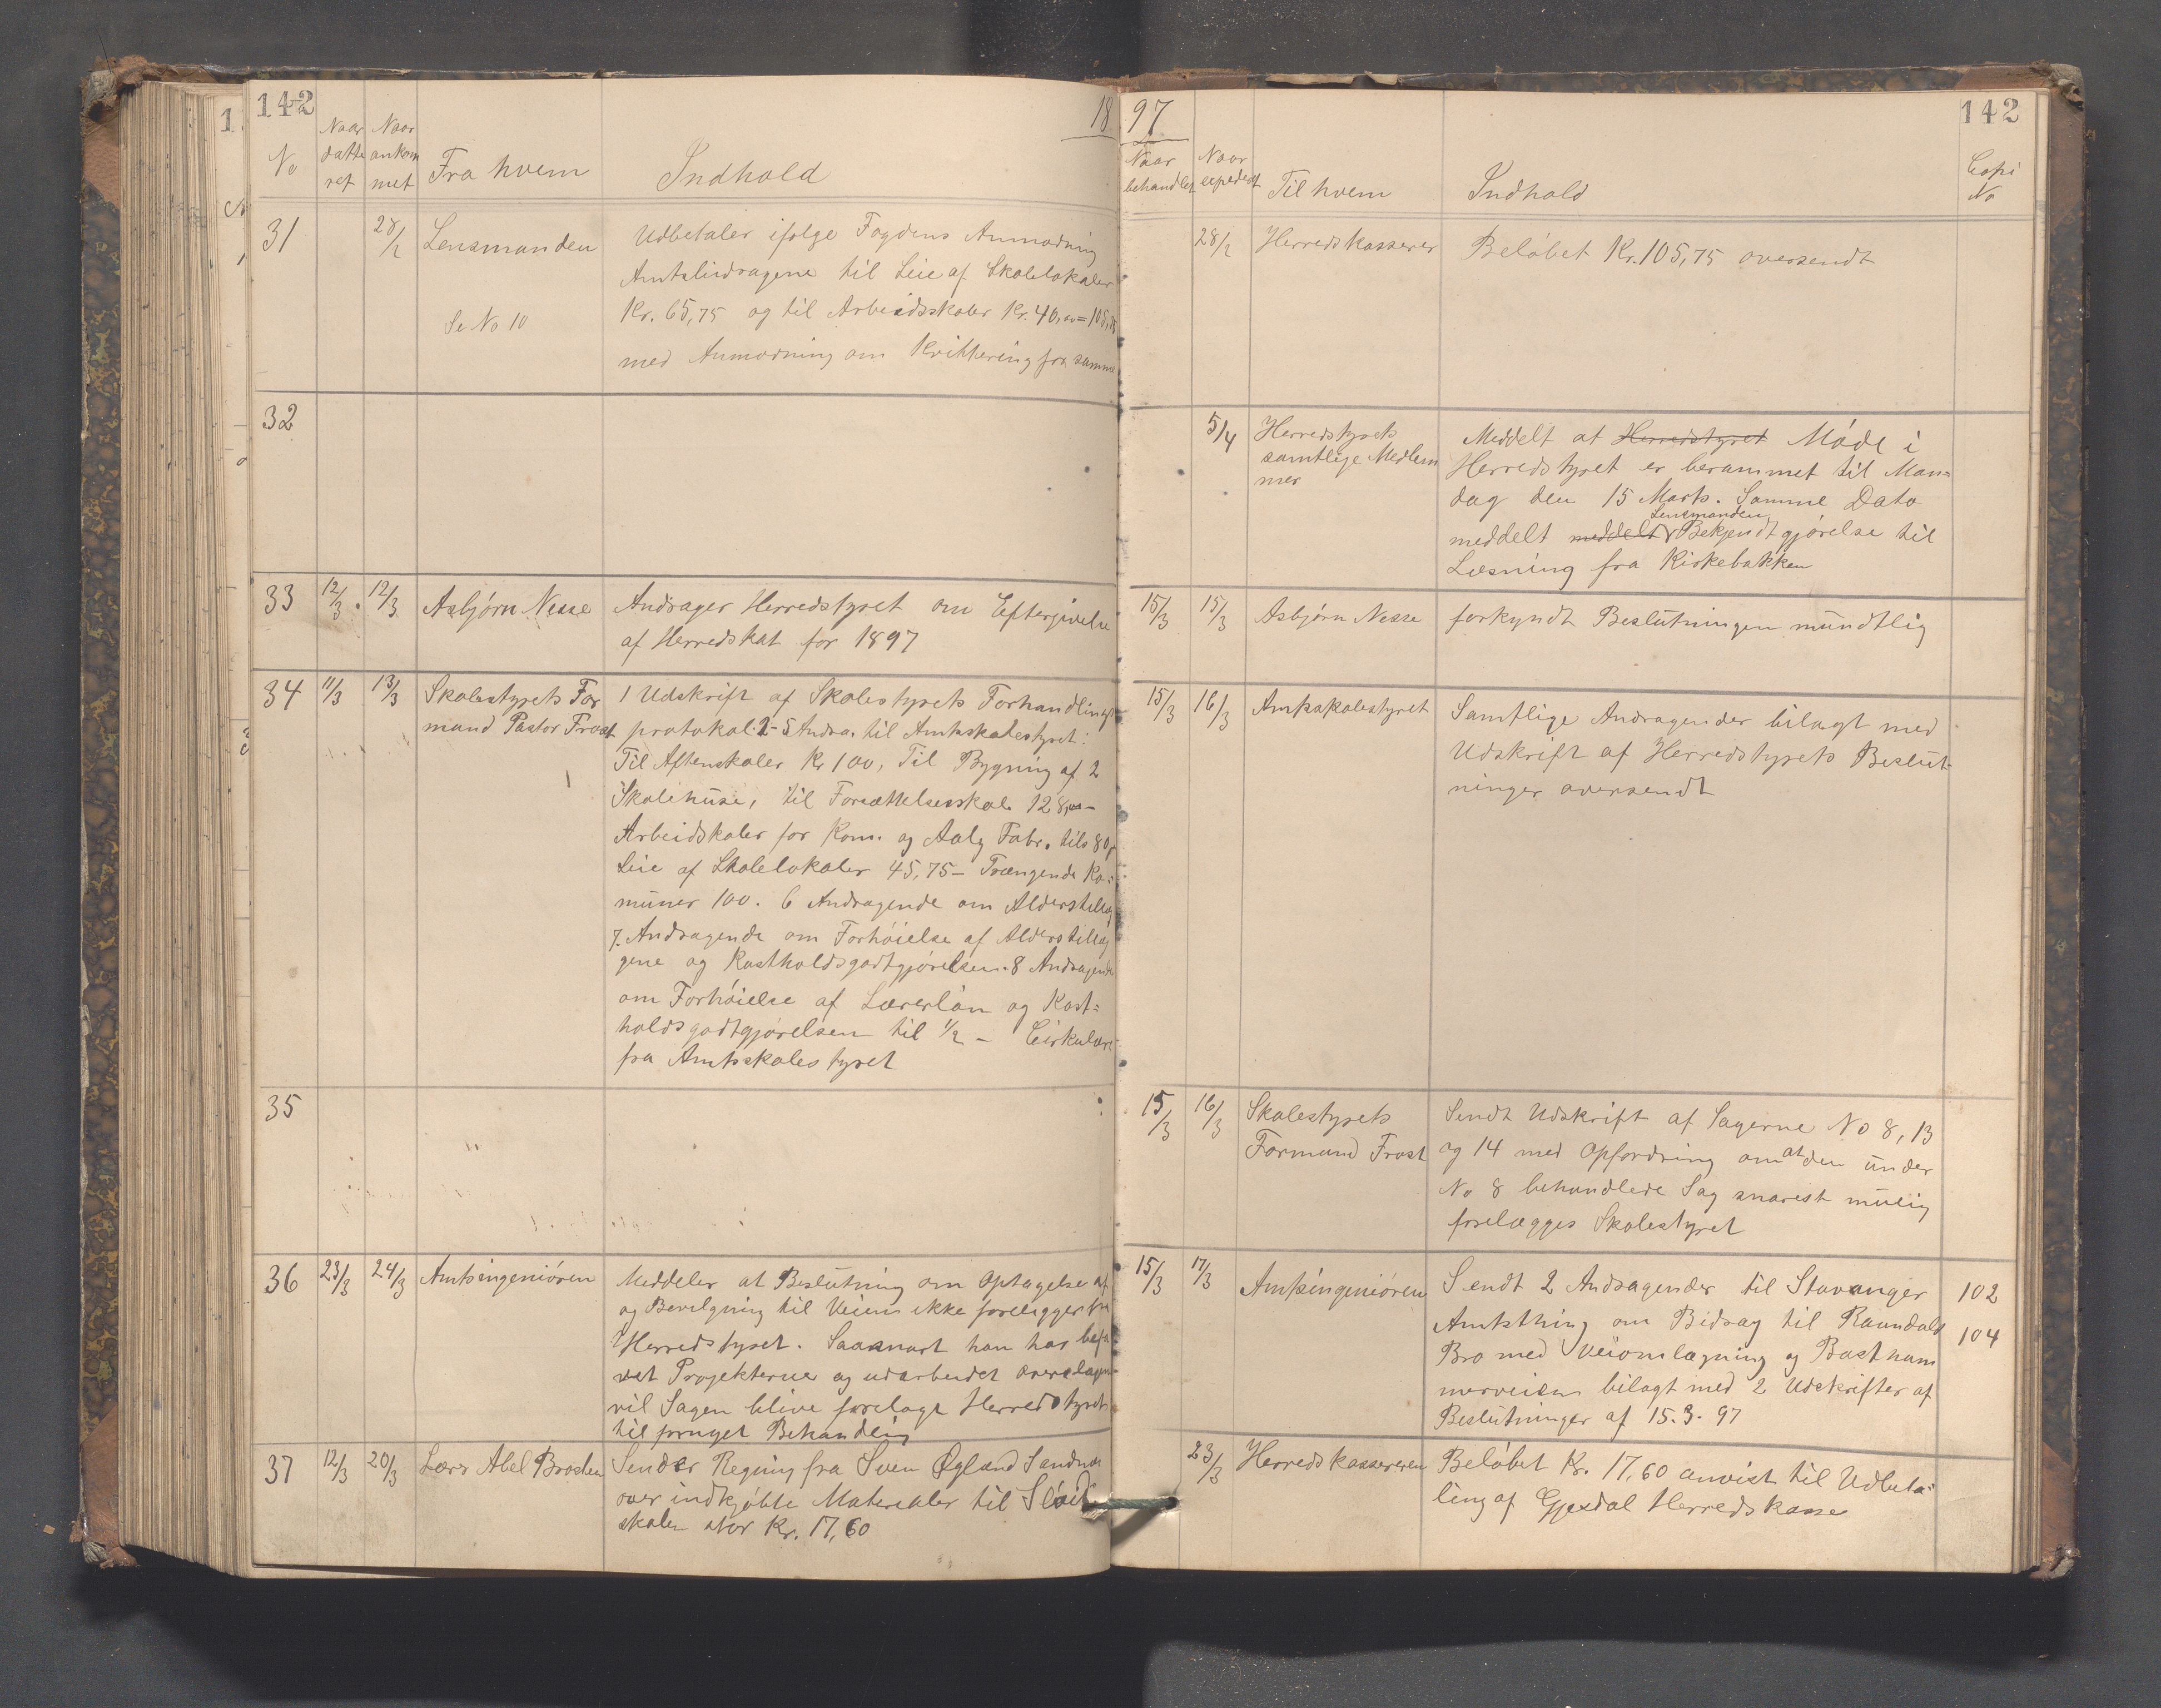 142
18
97
142
No
Naar datteret
Naar ankommet
Fra hvem
Indhold
Naar behandlet
Naar expederet
Til hvem
Indhold
Copi No
31
28/2
Lensmanden
Se No 10
Udbetaler ifølge Fogdens Anmodning
Amtsbidragene til Leie af Skolelokaler
Kr. 65,75 og til Arbeidsskoler Kr. 40,00 = 105,75
med Anmodning om Kvittering fra samme
28/2
Herredskasserer
Beløbet Kr. 105,75 oversendt
32
5/4
Herredstyrets
samtlige Medlem
mer
Meddelt at Herredstyret Møde i
Herredstyret er berammet til Man=
dag den 15 Marts. Samme Dato
Lensmanden
meddelt meddelt Bekjendtgjørelse til
Læsning fra Kirkebakken
33
12/3
12/3
Asbjørn Nesse
Andrager Herredstyret om Eftergivelse
af Herredskat for 1897
15/3
15/3
Asbjørn Nesse
forkyndt Beslutningen mundtlig
34
11/3
13/3
Skolestyrets For
mand Pastor Frost
1 Udskrift af Skolestyrets Forhandlings
protokol. 2-5 Andra. til Amtsskolestyret:
Til Aftenskoler Kr 100, Til Bygning af 2
Skolehuse, til Forsættelsesskole 128,00 -
Arbeidskoler for Kom. og Aalg Fabr. tils 80,
Leie af Skolelokaler 45,75 - Trængende Ko=
muner 100. 6 Andragende om Alderstillæg
7. Andragende om Forhøielse af Alderstillæg
gene og Kostholdsgodtgjørelsen. 8 Andragende
om Forhøielse af Lærerløn og Kost=
holdsgodtgjørelsen til 1/2 - Cirkulære
fra Amtsskolestyret
15/3
16/3
Amtsskolestyret
Samtlige Andragender bilagt med
Udskrift af Herredstyrets Beslut-
ninger oversendt
35
15/3
16/3
Skolestyrets
Formand Frost
Sendt Udskrift af Sagerne No 8, 13
og 14 med Opfordring om at den under
No 8 behandlede Sag snarest mulig
forelægges Skolestyret
36
23/3
24/3
Amtsingeniøren
Meddeler at Beslutning om Optagelse af
og Bevilgning til Veien ikke foreligger fra
Herredstyret. Saasnart han har befa
ret Projekterne og udarbeidet Overslagene
vil Sagen blive forelagt Herredstyret
til fornyet Behandling
15/3
17/3
Amtsingeniøren
Sendt 2 Andragender til Stavanger
Amtsthing om Bidrag til Raundals
Bro med Veiomlægning og Basthum
merveien bilagt med 2 Udskrifter af
Beslutninger af 15.3.97
102
104
37
12/3
20/3
Lærer Abel Brochen
Sender Regning fra Sven Øgland Sandnes
over indkjøbte Materialer til Sløid
skolen stor Kr. 17,60
23/3
Herredskassereren
Beløbet Kr. 17,60 anvist til Udbeta=
ling af Gjesdal Herredskasse